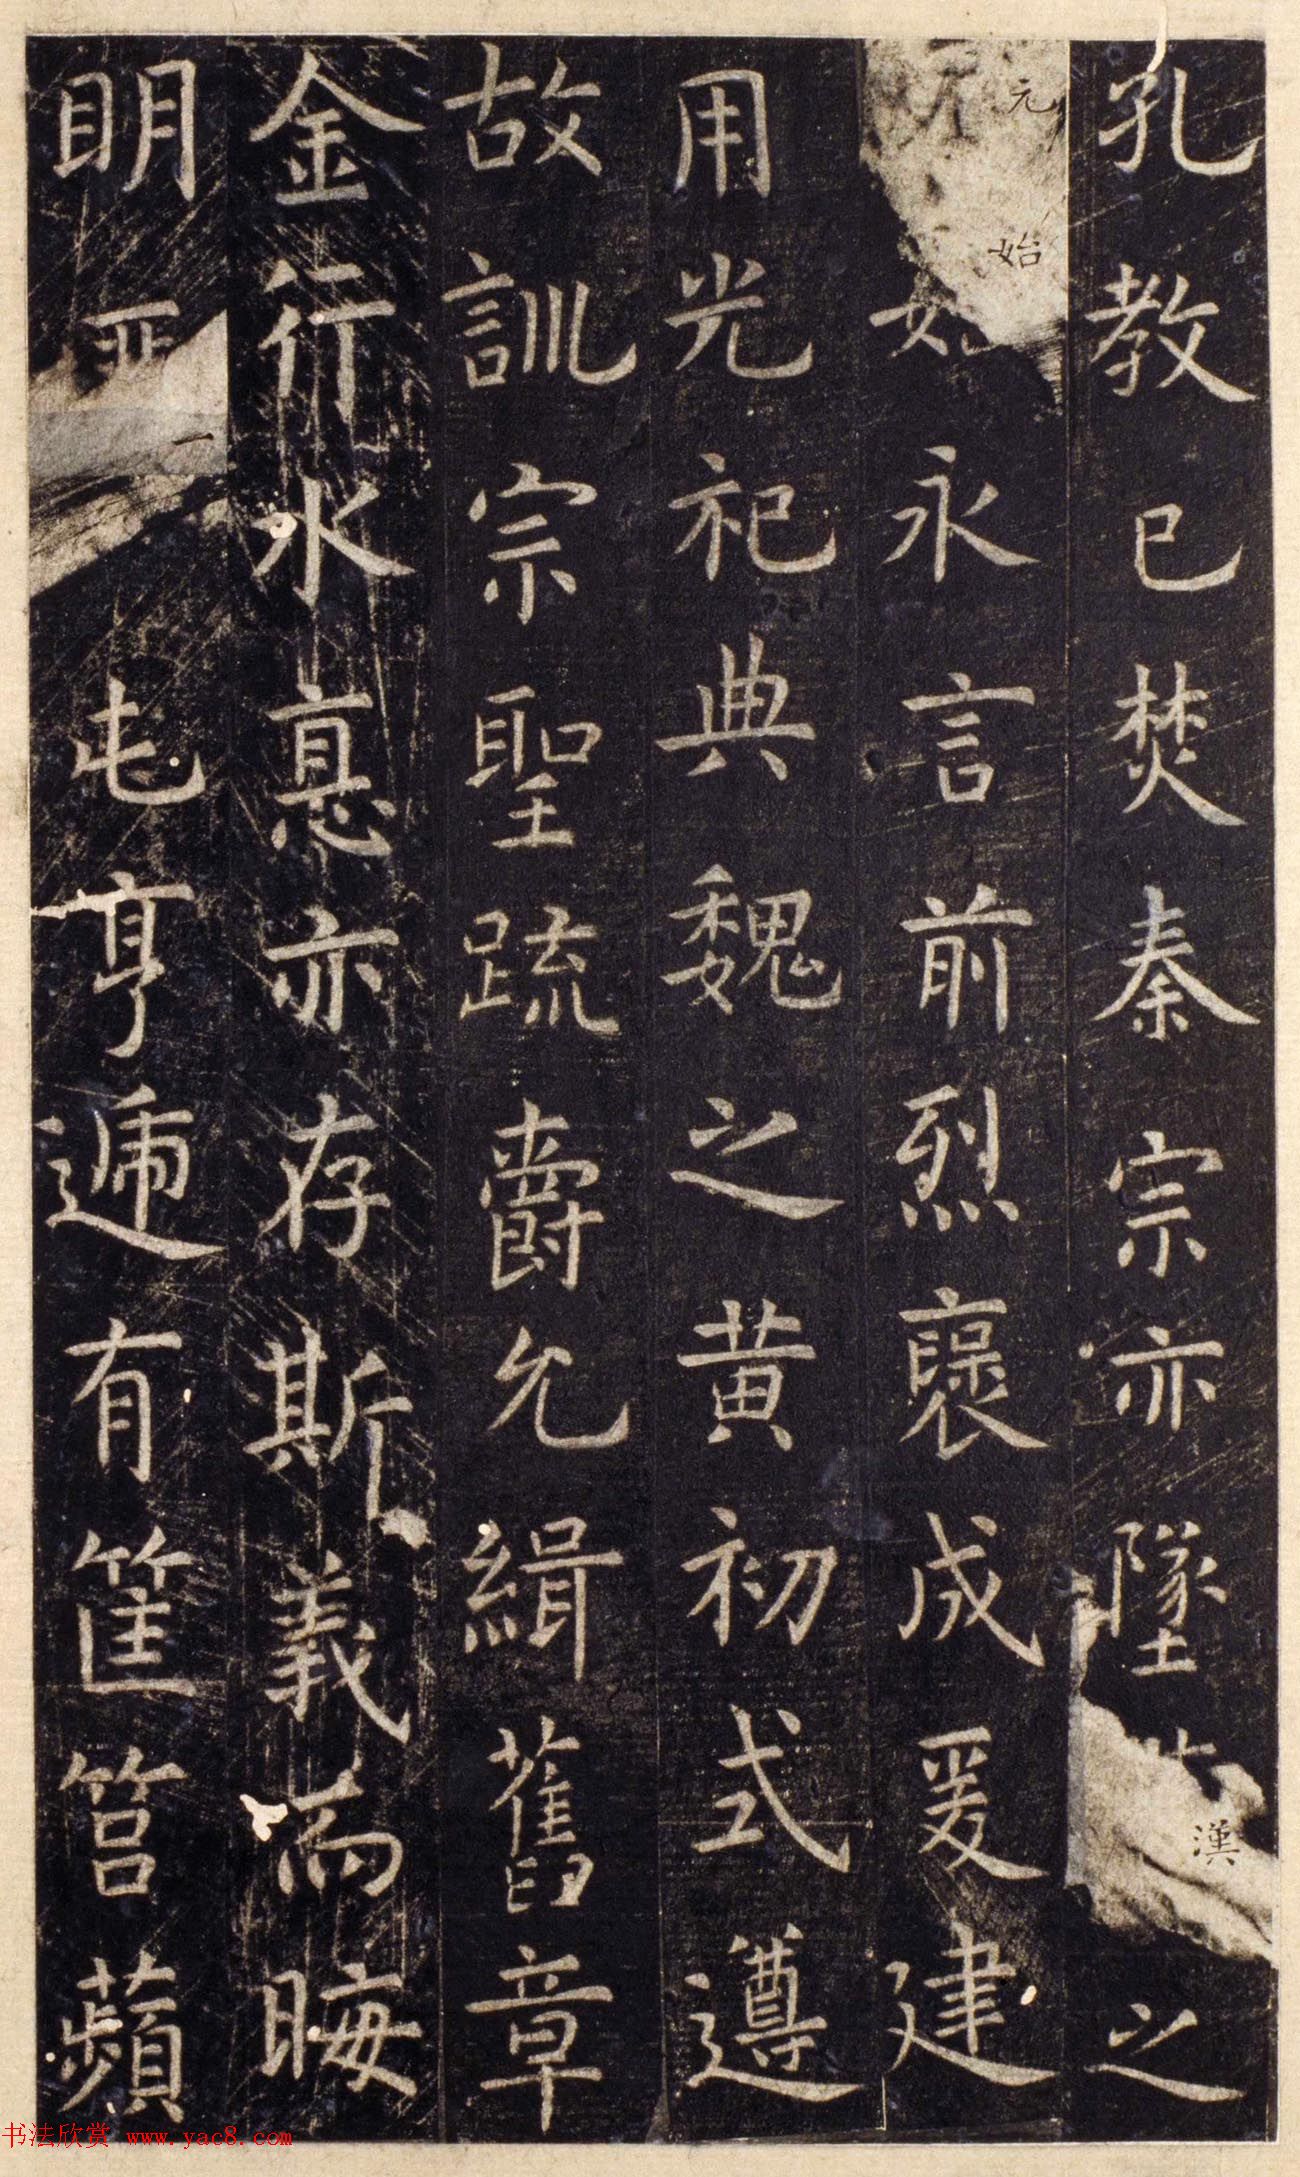 孔教已焚秦宗亦墜漢之
元始永言前烈褒成爰建
用光祀典魏之黄初式遵
故訓宗聖疏爵允緝舊章
金行水悳亦存斯義而晦
眀匪一屯亨遞有筐筥蘋
书法欣赏 www.yac8.com